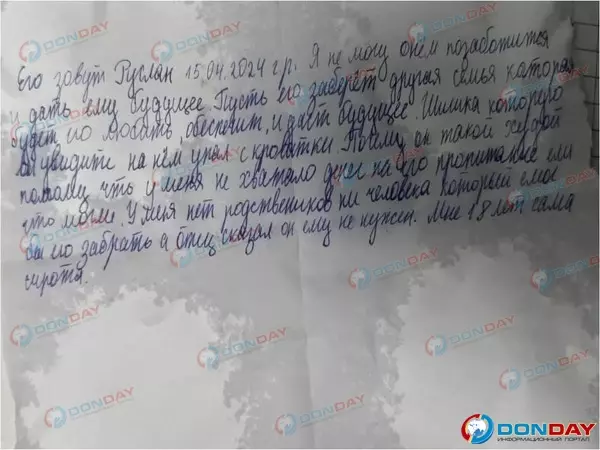 Его зовут Руслан 15.04.2024 г.р. Я не могу онём позаботится
и дать ему будущее. Пусть его заберёт другая семья которая
будет его любить обеспечит, и даст будущее. Шишка которого
вы увидити на нём упал с кроватки. Почему он такой худой
потому, что у меня не хватало денег на его пропитание ели
что могли. У меня нет родствеников ни человека который смог
бы его забрать а отец сказал он ему не нужен. Мне 18 лет сама
сирота.
DONDAY
ИНФОРМАЦИОННЫЙ ПОРТАЛ